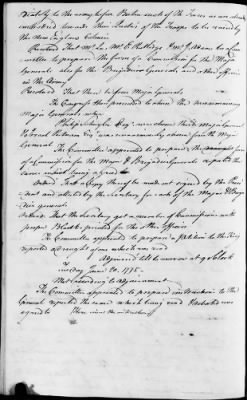 diately to the army before Boston such of the
the New England Colonies
Resolved That Mr Lee, Mr E. Rutledge & Mr J. Adams be a Com-
mittee to prepare the form of a Commission for the Major
Generals also for the Brigadier Generals, and other officers
in the Army
Resolved That there be four Major Generals
The Congress then proceeded to choose the remaining
Major Generals when
Philip Schuyler Esq was chosen third Major General
& Israel Putnam Esq was unanimously chosen fourth Major
General
The Committee appointed to prepare the form
of a Commission for the Major & Brigadier Generals reported the
same which being agreed
Ordered, That a Copy thereof be made out signed by the Presi-
dent and attested by the Secretary for each of the Major & Briga-
dier generals
Ordered That the Secretary get a number of Commissions with
proper Blanks printed for the other officers
The Committee appointed to prepare a Petition to the King
reported a draught of one which was read
Adjourned till to morrow at 9 o Clock
Tuesday June 20. 1775.
Met according to adjournment
The Committee appointed to prepare instructions to the
General reported the same which being read & debated was
agreed to